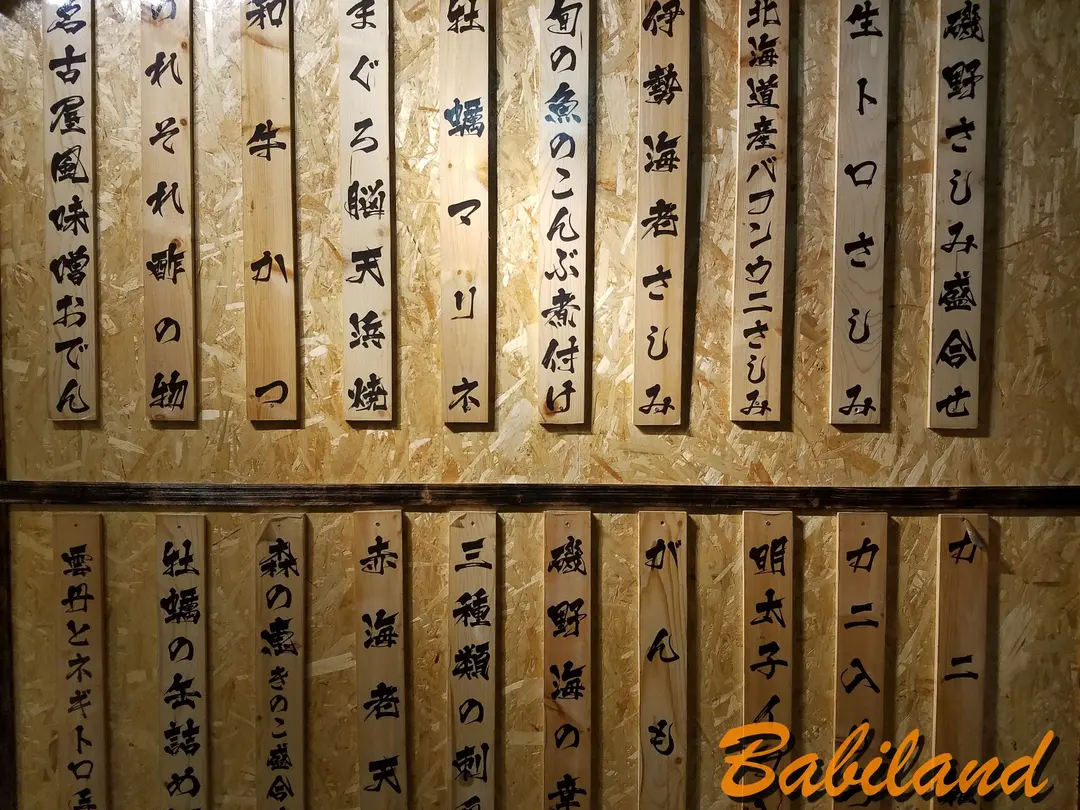 磯野さしみ盛合せ
生トロさしみ
北海道産バフンウニさしみ
伊勢海老さしみ
旬の魚のこんぶ煮付け
牡蠣マリネ
まぐろ脳天浜焼
和牛かつ
れそれ酢の物
名古屋風味噌おでん
カニ
カニ入
明太子
がんも
磯野海の幸
三種類の刺
赤海老天
森の恵きのこ盛合
牡蠣の缶詰め
雲丹とネギトロ
Babiland